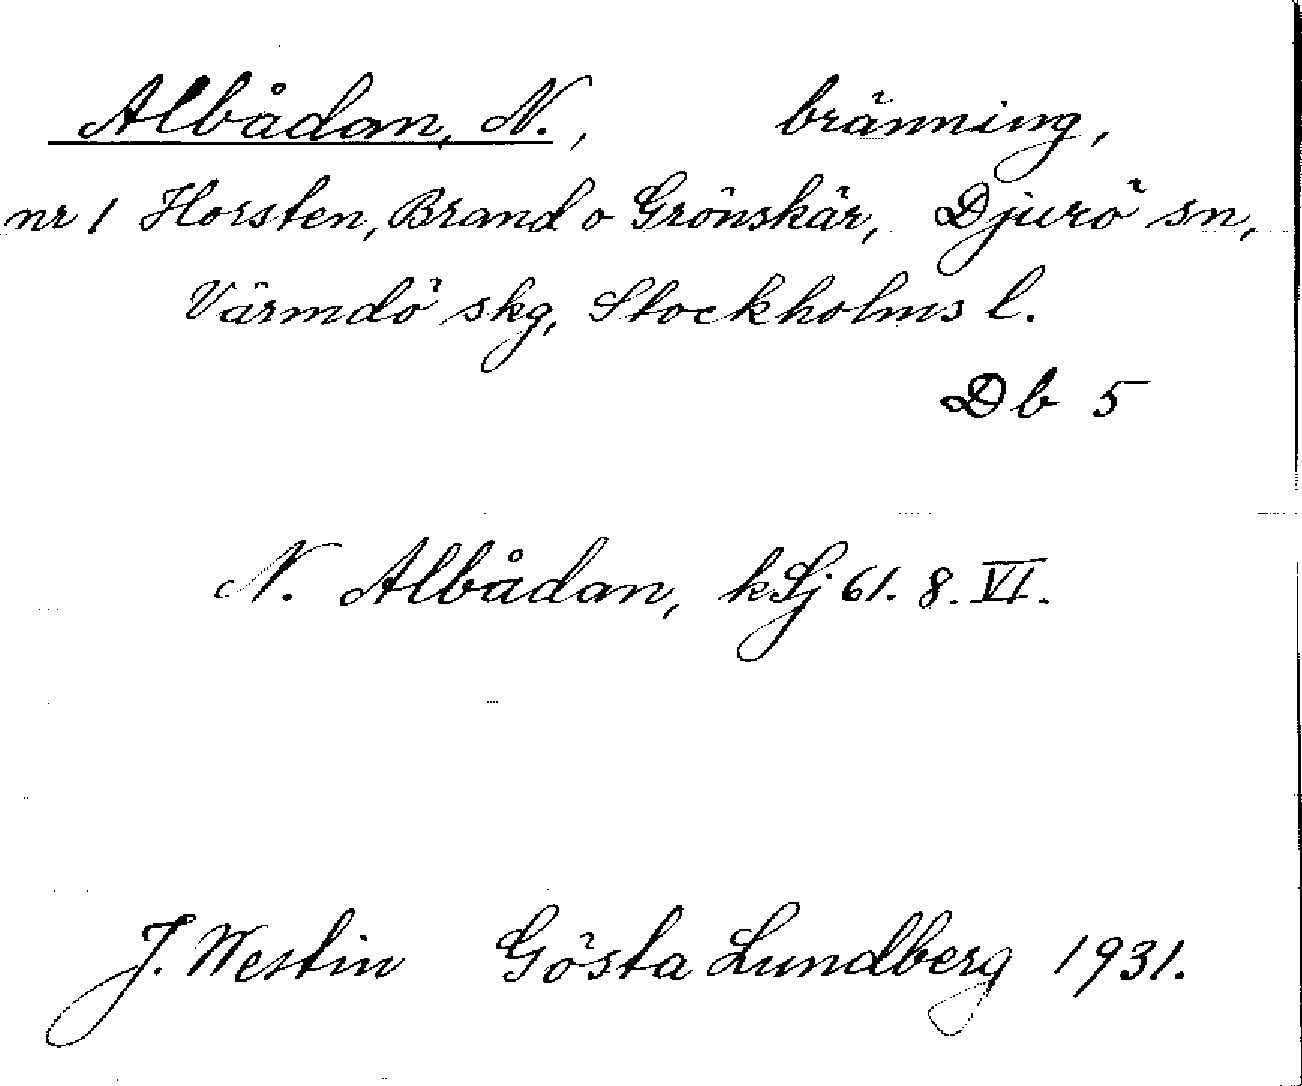 Albådan, N., bränning,
nr 1 Horsten, Brand o Grönskär, Djurö sn,
Värmdö skg, Stockholms l.
Db 5
N. Albådan, kSj 61. 8. VI.
J. Westin Gösta Lundberg 1931.